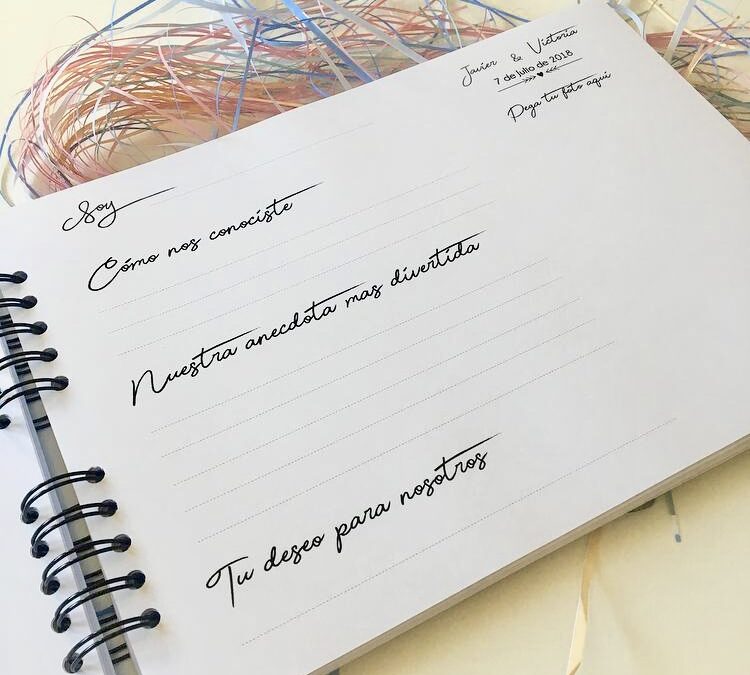 Javier & Victoria
7 de Julio de 2018
Pega tu foto aqui
Soy
Cómo nos conociste
Nuestra anecdota mas divertida
Tu deseo para nosotros